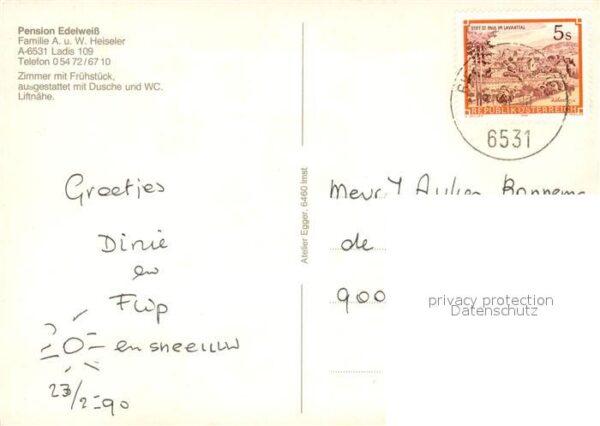 Pension Edelweiß
Familie A. u. W. Heiseler
A-6531 Ladis 109
Telefon 0 54 72 / 67 10
Zimmer mit Frühstück,
ausgestattet mit Dusche und WC.
Liftnähe.
STIFT ST. PAUL IM LAVANTTAL
5s
REPUBLIK ÖSTERREICH
6531
Groetjes
Dinie
en
Flip
en sneeuw
23/2-90
Atelier Egger, 6460 Imst
Mevr.
de
900
privacy protection
Datenschutz